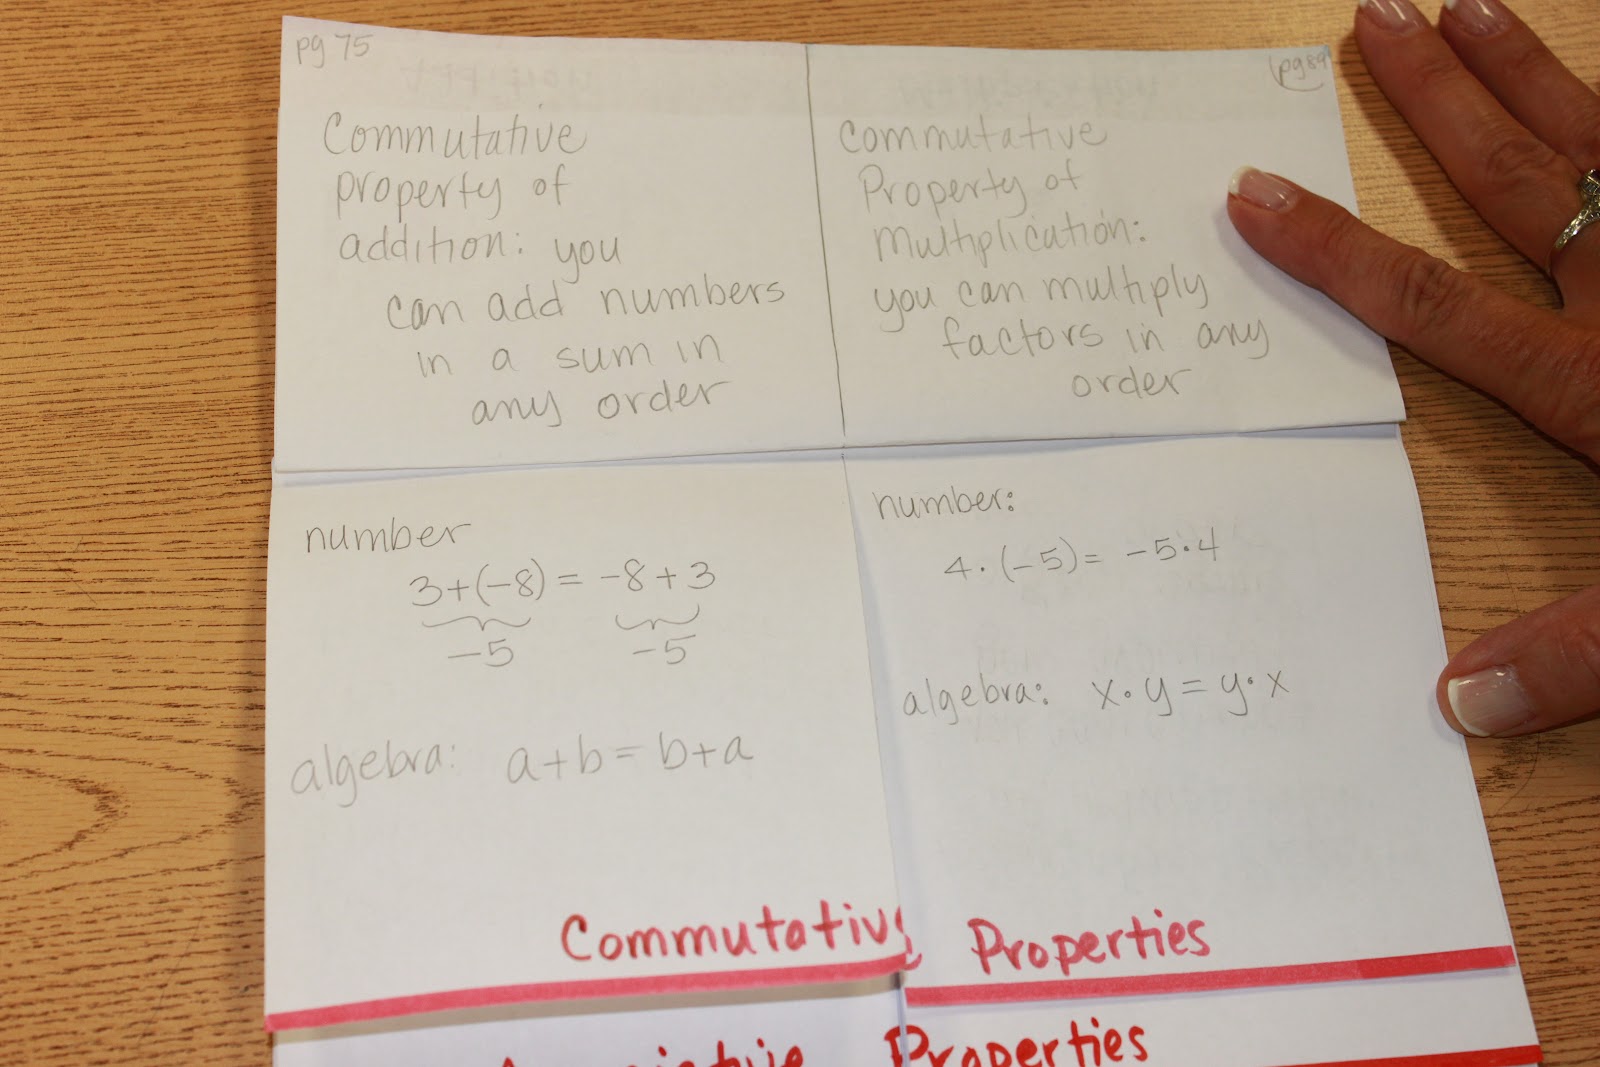 pg 75
Commutative
property of
addition: you
can add numbers
in a sum in
any order
pg 89
Commutative
Property of
Multiplication:
you can multiply
factors in any
order
number
3+(-8) = -8+3
-5 -5
algebra: a+b = b+a
number:
4·(-5) = -5·4
algebra: x·y = y·x
Commutative Properties
Properties